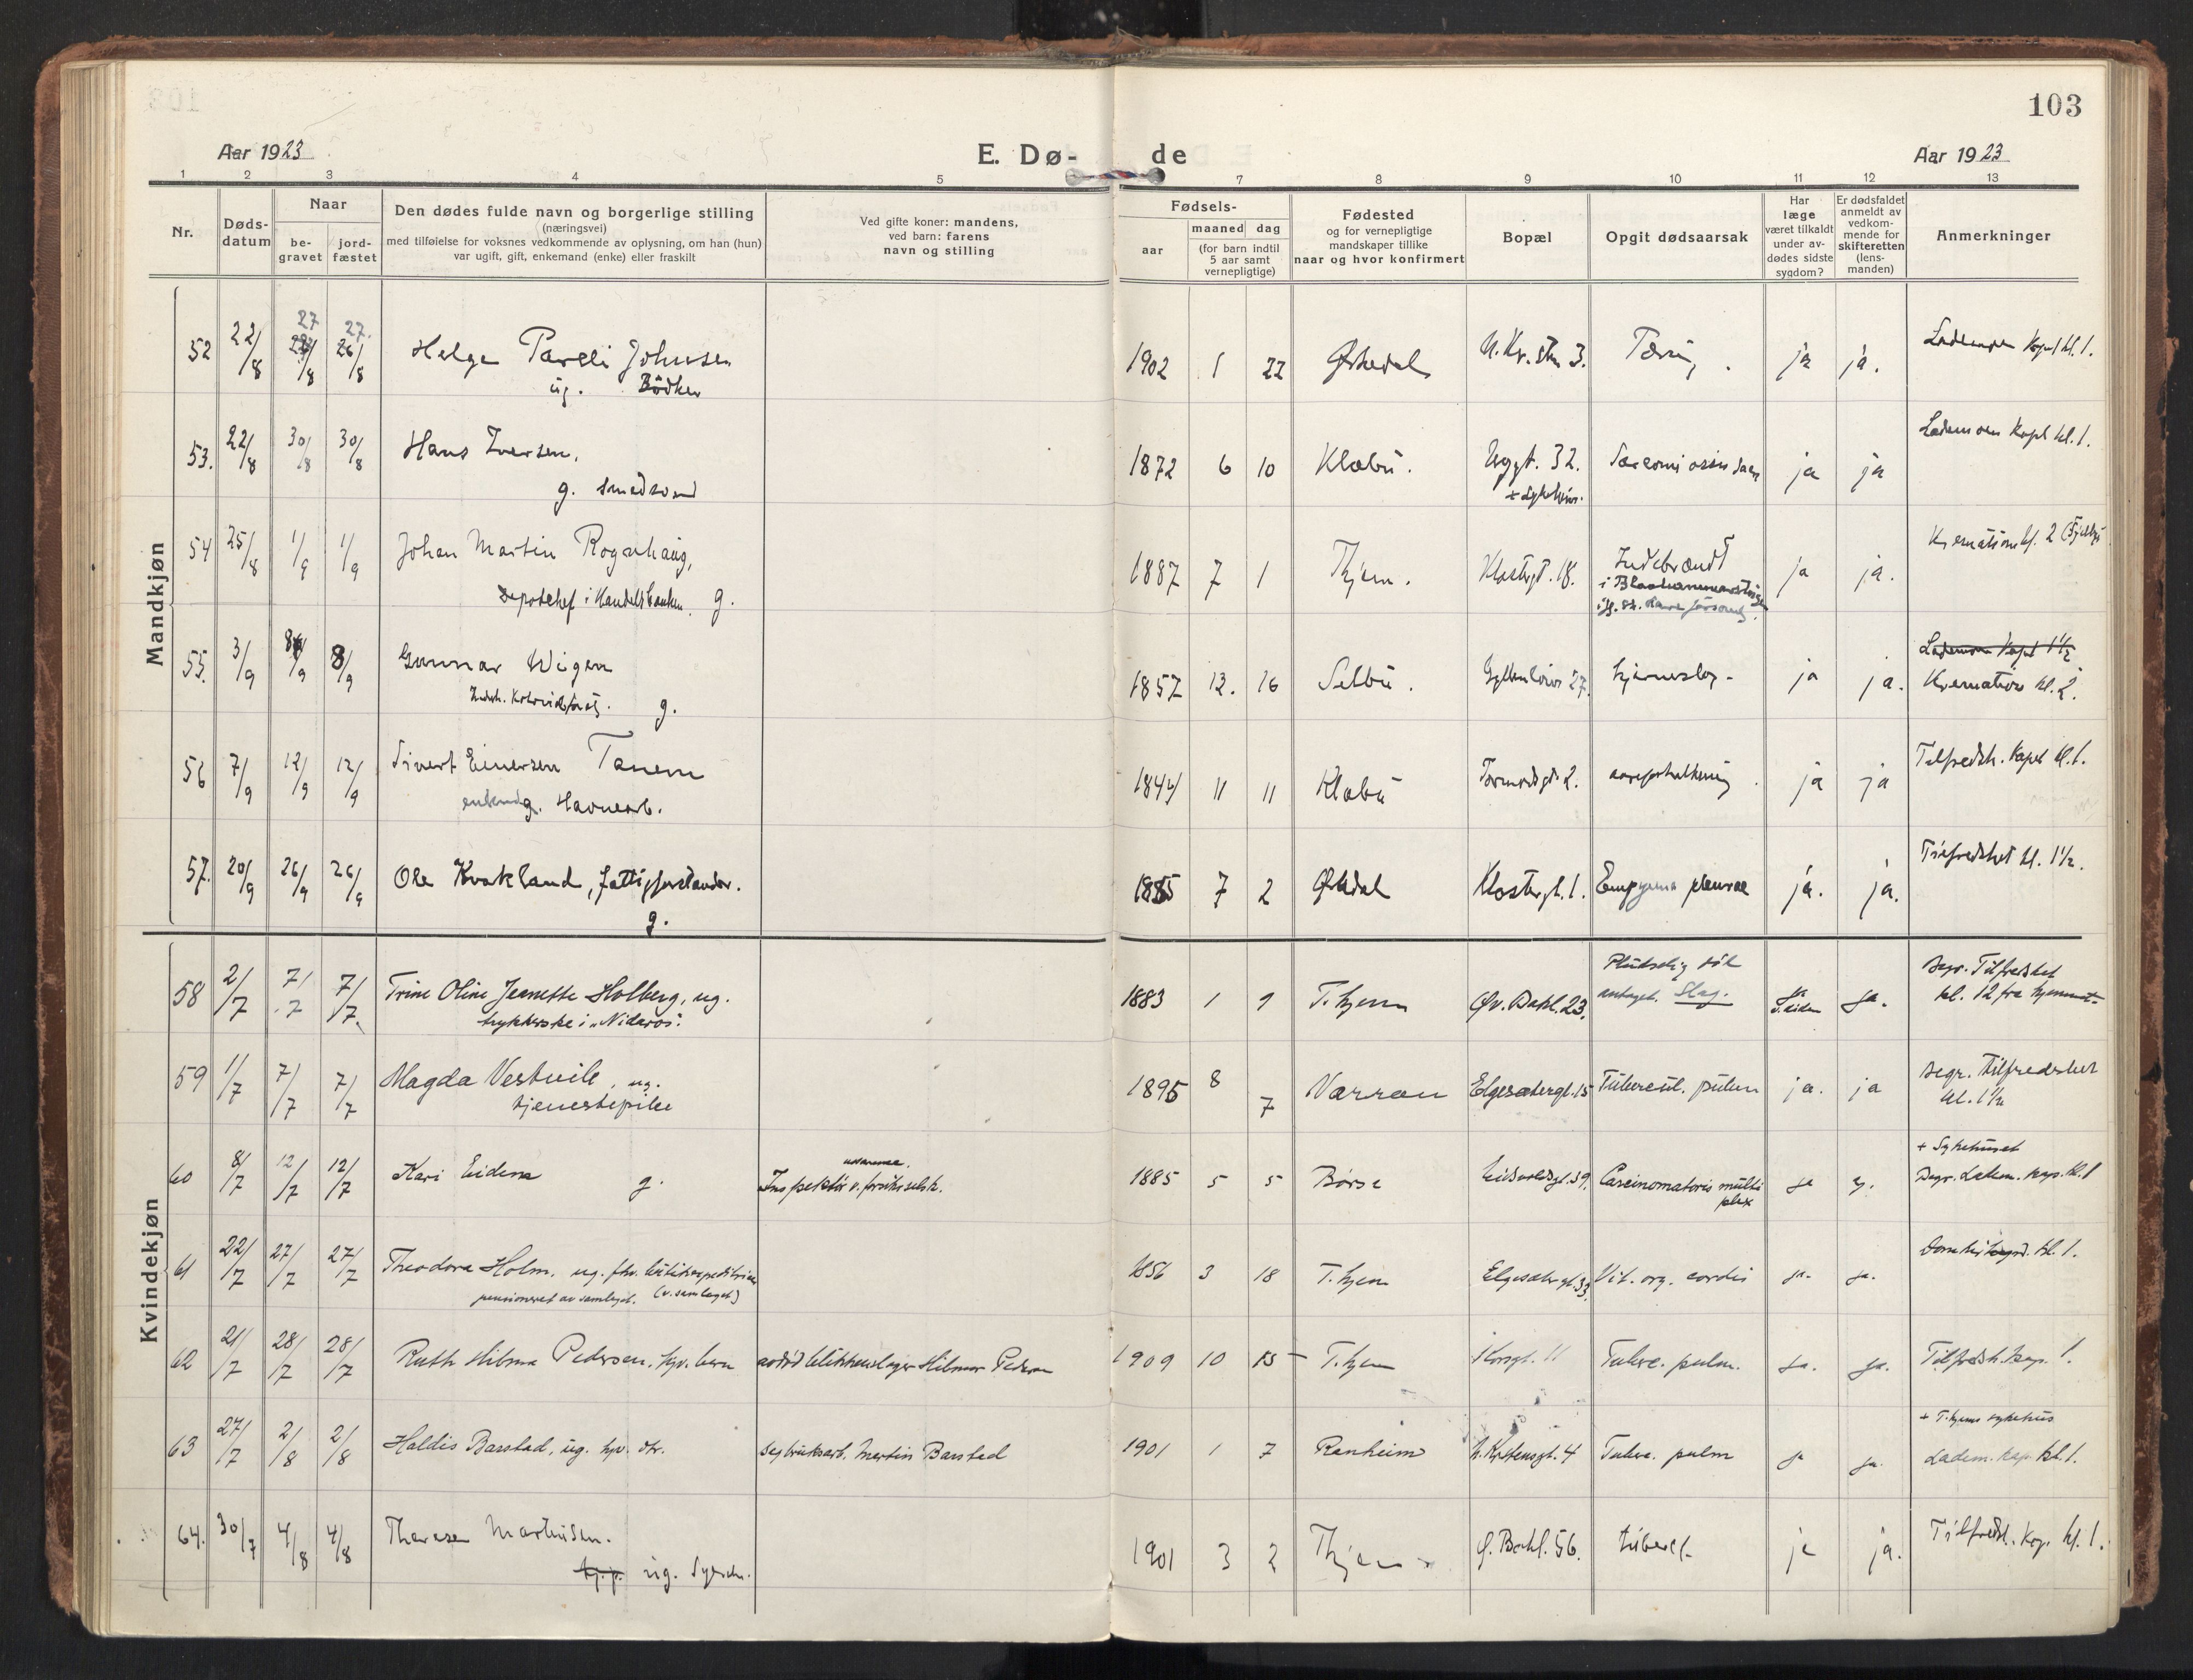 103
Aar 1923 E. Dø- de Aar 1923
1 2 3 4 5 7 8 9 10 11 12 13
Nr. Døds-datum Naar be-gravet jord-fæstet
Den dødes fulde navn og borgerlige stilling
(næringsvei)
med tilføielse for voksnes vedkommende av oplysning, om han (hun)
var ugift, gift, enkemand (enke) eller fraskilt
Ved gifte koner: mandens,
ved barn: farens
navn og stilling
Fødsels-
aar maaned dag
(for barn indtil
5 aar samt
vernepligtige)
Fødested
og for vernepligtige
mandskaper tillike
naar og hvor konfirmert
Bopæl
Opgit dødsaarsak
Har
læge
været tilkaldt
under av-
dødes sidste
sygdom?
Er dødsfaldet
anmeldt av
vedkom-
mende for
skifteretten
(lens-
manden)
Anmerkninger
Mandkjøn
52 22/8 27 26/8 27. 26/8 Helge Pareli Johnsen 1902 1 22 Ørkedal Tæring. ja ja. Lademoen Kapel kl. 1.
ug. Bødker
53. 22/8 30/8 30/8 Hans Iversen. 1872 6 10 Klæbu. 32. ja ja Lademoen Kapel kl. 1.
g. smedsvend
+ Sykehus.
54 25/8 1/9 1/9 Johan Martin Rognhaug, 1887 7 1 Thjem. Klostergt. 18. Indebrændt ja ja. Kremation kl. 2
Depotchef i Handelsbanken. g.
55. 3/9 8/9 8/9 Gunnar Wigen 1857 12. 16 Selbu. Gyldenløves 27. hjerneslag. ja ja. Lademoen Kapel 1 1/2
g. Kremation kl. 2.
56 7/9 12/9 12/9 Sivert Einersen Tanem 1844 11 11 Klæbu Tormodsgt 2. aareforkalkning. ja ja Tilfredsh. Kapel kl. 1.
enkemd. Havnearb.
57. 20/9 26/9 26/9 Ole Kvakland, fattigforstander. 1885 7 2 Ørkdal Klostergt. 1. Empyema pleurae ja. ja. Tilfredshet kl. 1 1/2.
g.
Kvindekjøn
58 2/7 7/7 7/7. Trine Oline Jeanette Holberg, ug. 1883 1 9 T.hjem Øv. Bakl. 23. Pludselig død antaget. Slag. ja. Begr. Tilfredshet
trykkerske i „Nidaros". kl. 12 fra hjemmet
59 1/7 7/7 7/7 Magda Vestvik, ug. 1895 8 7 Værran Elgesetergt. 15 Tubercul. pulm ja. ja Begr. Tilfredshet
tjenestepike kl. 1 1/2
60 8/7 12/7 12/7 Kari Eidem g. Inspektør v. forsikr.selsk. 1885 5 5 Børse Eidsvoldsgt. 39. Carcinomatosis multiplex ja + Sykehuset
Begr. Ladem. kap. kl. 1
61 22/7 27/7 27/7 Theodora Holm. ug. fhv. butikexpeditrice 1856 3 18 T.hjem Elgesetergt. 33. Vit. org. cordis ja. ja. kl. 1.
pensioneret av samlaget. (v. samlaget)
62 21/7 28/7 28/7 Ruth Hilma Pedersen, hjv. barn avdød blikkenslager Hilmar Pedersen 1909 10 15 T.hjem Korsgt. 11 Tuberc. pulm. ja. ja. Tilfredsh. kap. 1.
63 27/7 2/8 2/8 Haldis Barstad, ug. hjv. dtr. Martin Barstad 1901 1 7 Ranheim 4 Tuberc. pulm ja ja. + T.hjems sykehus
Ladem. kap. kl. 1.
64. 30/7 4/8 4/8 Therese Martinsen. 1901 3 2 Thjem Ø. Bakl. 56. tubercl. ja ja. Tilfredsh. Kap. kl. 1.
ug. Syersk.